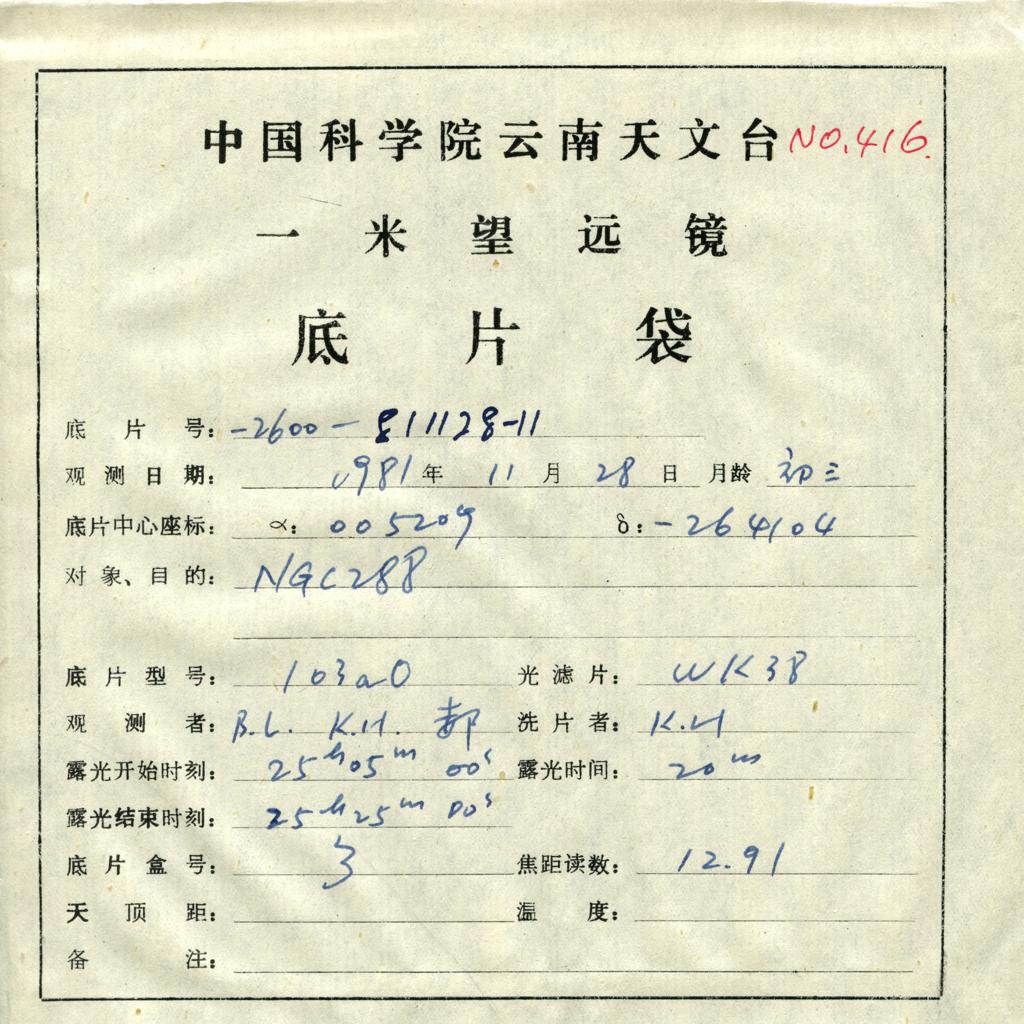 中国科学院云南天文台 NO.416.
一米望远镜
底片袋
底片号: -2600-811128-11
观测日期: 1981年 11月 28日 月龄 初三
底片中心座标: α: 005209 δ: -264104
对象、目的: NGC288
底片型号: 103aO 光滤片: WK38
观测者: B.L. K.H. 郝 洗片者: K.H
露光开始时刻: 25h05m 00s 露光时间: 20m
露光结束时刻: 25h25m 00s
底片盒号: 3 焦距读数: 12.91
天顶距: 温度:
备注: